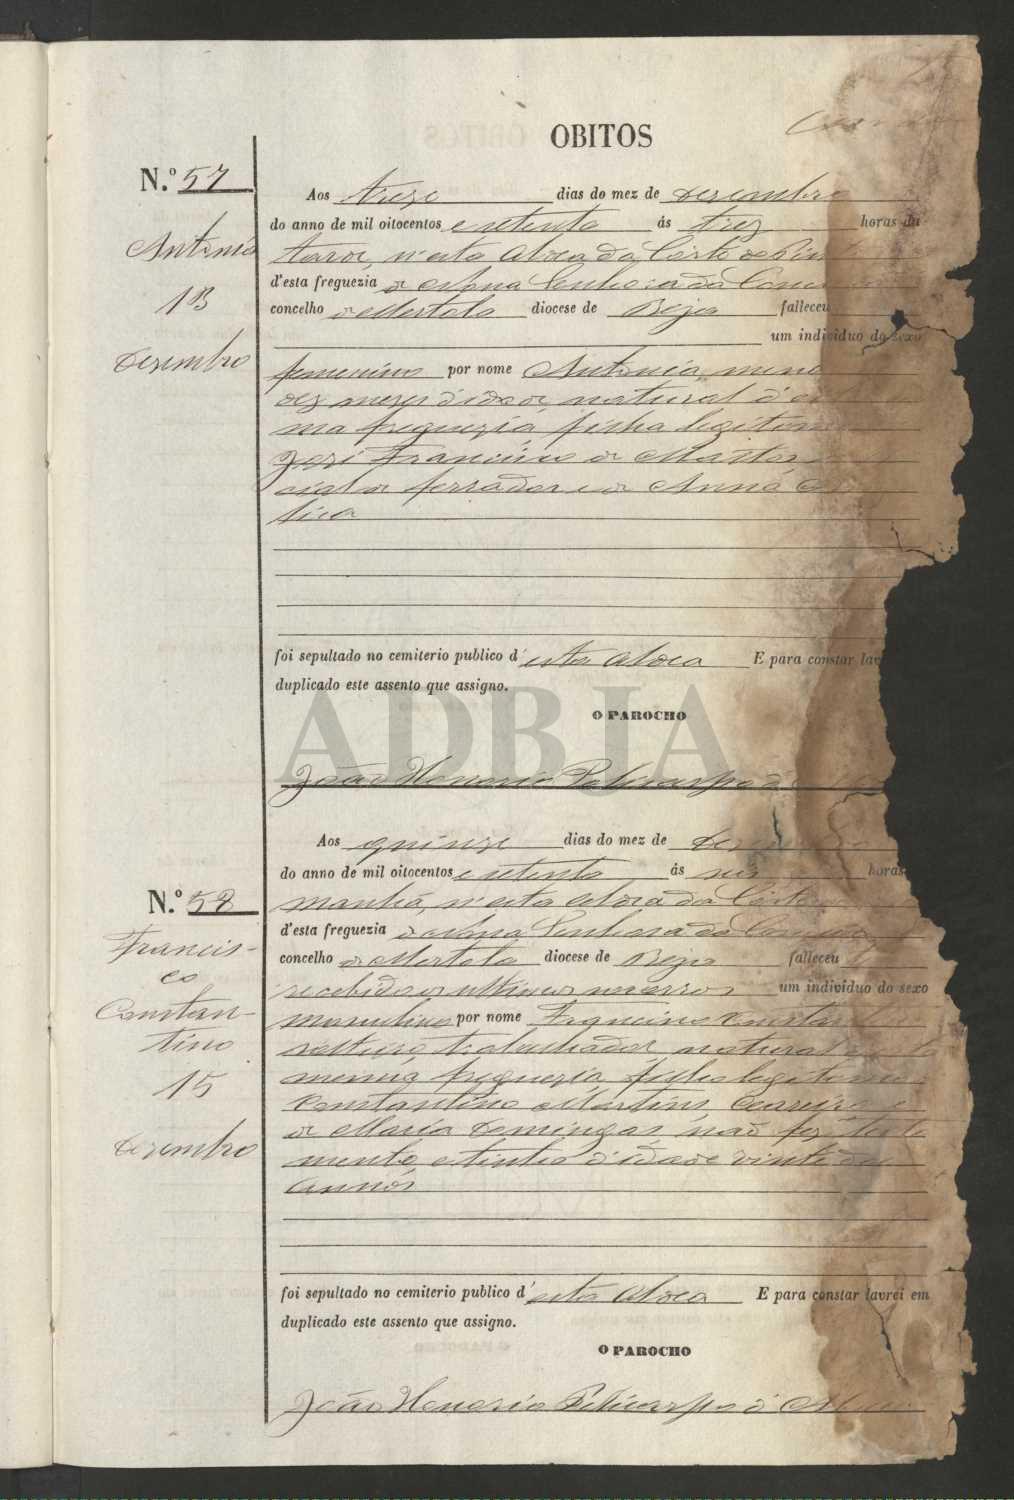 OBITOS
N.º 57
Antonia
13
Dezembro
Aos treze dias do mez de Dezembro
do anno de mil oitocentos e setenta ás trez horas da
tarde, n'esta Aldea da Corte do Pinto
d'esta freguezia de Nossa Senhora da Conceição
concelho de Mertola diocese de Beja falleceu
um individuo do sexo
femenino por nome Antonia, menor
dez mezes d'idade, natural d'esta
ma freguezia, filha legitima
José Francisco de Mattos
cial de ferrador e de Anna
tica
foi sepultado no cemiterio publico d'esta Aldea E para constar lav
duplicado este assento que assigno.
O PAROCHO
João Honorio Policarpo d
ADBJA
N.º 58
Francis-
co
Constan-
tino
15
Dezembro
Aos quinze dias do mez de Dezembro
do anno de mil oitocentos e setenta ás seis horas
manhã, n'esta Aldea da Corte
d'esta freguezia de Nossa Senhora da Conceição
concelho de Mertola diocese de Beja falleceu
recebido os ultimos socorros um individuo do sexo
masculino por nome Francisco Constan
solteiro trabalhador natural
mesma freguezia, filho legitimo
Constantino Martins e
de Maria Domingas, não fez testa
mento, e tinha d'idade vinte
annos
foi sepultado no cemiterio publico d'esta Aldea E para constar lavrei em
duplicado este assento que assigno.
O PAROCHO
João Honorio Policarpo d'